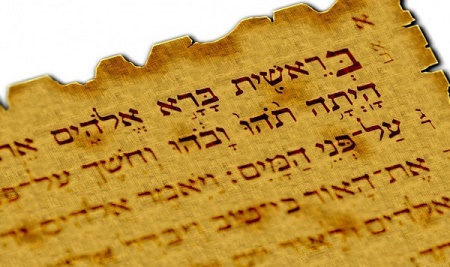 א
בְּרֵאשִׁית בָּרָא אֱלֹהִים אֵת
הָיְתָה תֹהוּ וָבֹהוּ וְחֹשֶׁךְ עַל-
עַל-פְּנֵי הַמָּיִם: וַיֹּאמֶר אֱלֹהִים
אֶת-הָאוֹר כִּי-טוֹב וַיַּבְדֵּל
אֱלֹהִים לָאוֹר